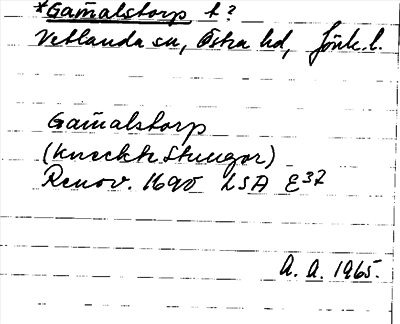 *Gam̄alstorp t?
Vetlanda sn, Östra hd, Jönk. l.
Gam̄alstorp
(knechte Stuugor)
Renov. 1690 LSA E37
A. A. 1965.